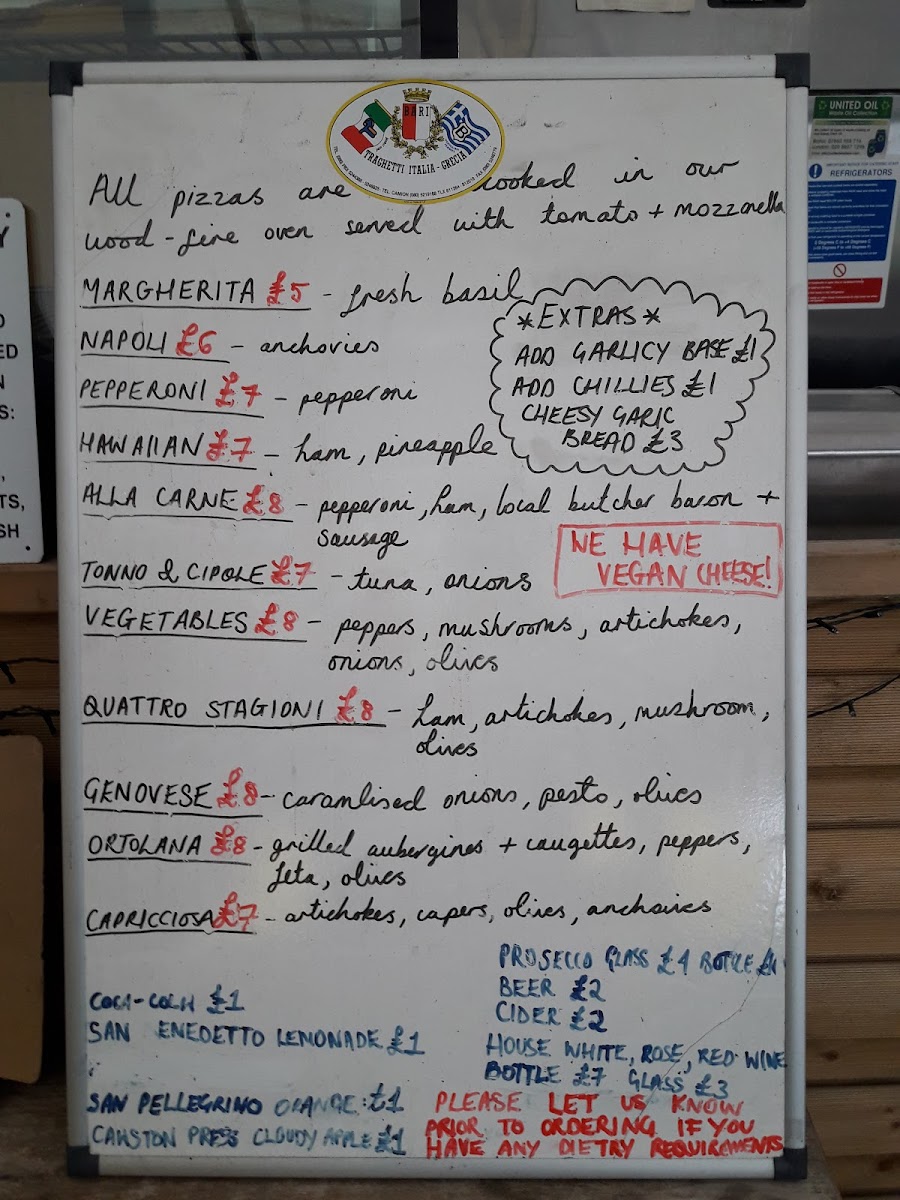 BARI
FRAGHETTI ITALIA - GRECIA
All pizzas are cooked in our
wood-fire oven served with tomato + mozzarella
MARGHERITA £5 - fresh basil
NAPOLI £6 - anchovies
PEPPERONI £7 - pepperoni
HAWAIIAN £7 - ham, pineapple
*EXTRAS*
ADD GARLICY BASE £1
ADD CHILLIES £1
CHEESY GARIC
BREAD £3
ALLA CARNE £8 - pepperoni, ham, local butcher bacon +
sausage
WE HAVE
VEGAN CHEESE!
TONNO & CIPOLE £7 - tuna, onions
VEGETABLES £8 - peppers, mushrooms, artichokes,
onions, olives
QUATTRO STAGIONI £8 - ham, artichokes, mushroom,
olives
GENOVESE £8 - caramlised onions, pesto, olives
ORTOLANA £8 - grilled aubergines + caugettes, peppers,
feta, olives
CAPRICCIOSA £7 - artichokes, capers, olives, anchoives
COCA-COLA £1
SAN ENEDETTO LEMONADE £1
SAN PELLEGRINO ORANGE £1
CAWSTON PRESS CLOUDY APPLE £1
PROSECCO GLASS £4 BOTTLE
BEER £2
CIDER £2
HOUSE WHITE, ROSE, RED WINE
BOTTLE £7 GLASS £3
PLEASE LET US KNOW
PRIOR TO ORDERING IF YOU
HAVE ANY DIETRY REQUIREMENTS
UNITED OIL
Waste Oil Collection
REFRIGERATORS